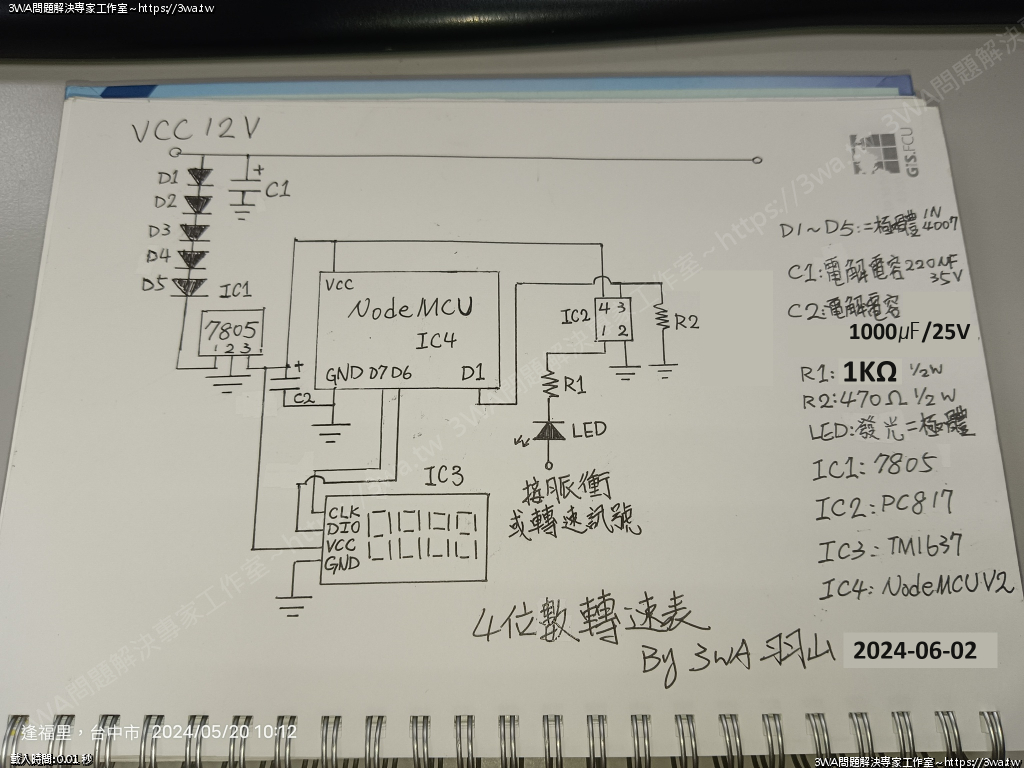 3WA問題解決專家工作室~https://3wa.tw
VCC 12V
D1
D2
D3
D4
D5
+
C1
IC1
7805
1 2 3
+
C2
VCC
NodeMCU
IC4
GND D7 D6 D1
IC2
4 3
1 2
R2
R1
LED
接脈衝
或轉速訊號
IC3
CLK
DIO
VCC
GND
GIS.FCU
D1~D5:二極體 1N4007
C1:電解電容 220μF 35V
C2:電解電容
1000μF/25V
R1: 1KΩ 1/2W
R2:470Ω 1/2W
LED:發光二極體
IC1:7805
IC2:PC817
IC3:TM1637
IC4:NodeMCU V2
4位數轉速表
By 3WA 羽山 2024-06-02
逢福里,台中市 2024/05/20 10:12
載入時間:0.01 秒
3WA問題解決專家工作室~https://3wa.tw
3WA問題解決專家工作室~https://3wa.tw
3WA問題解決